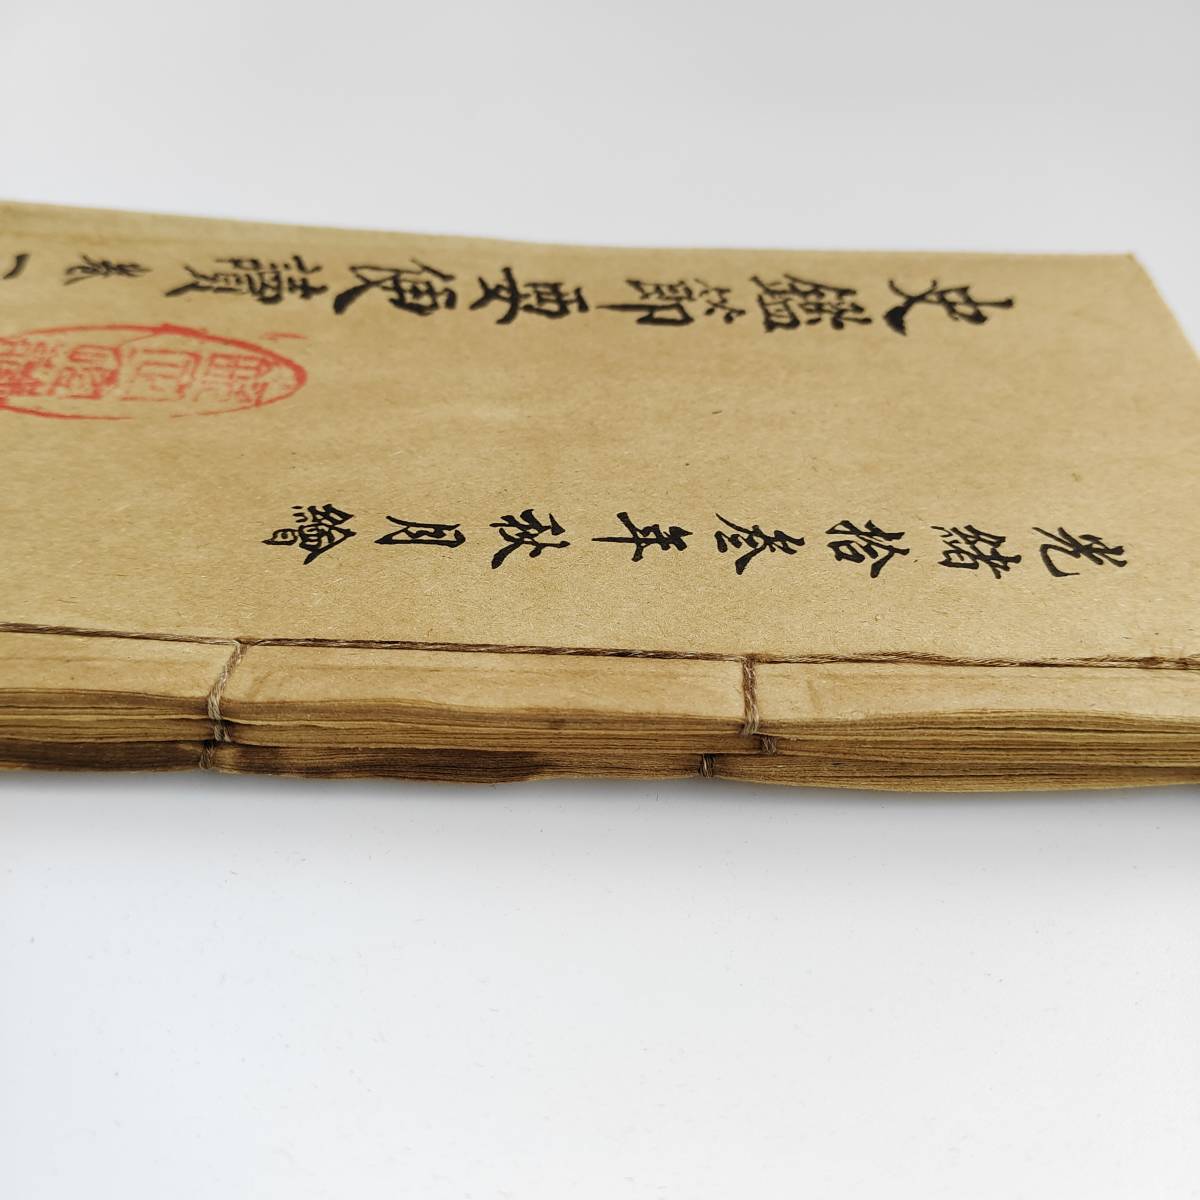 史鑑節要便讀 卷一
光緒拾叁年秋月繪